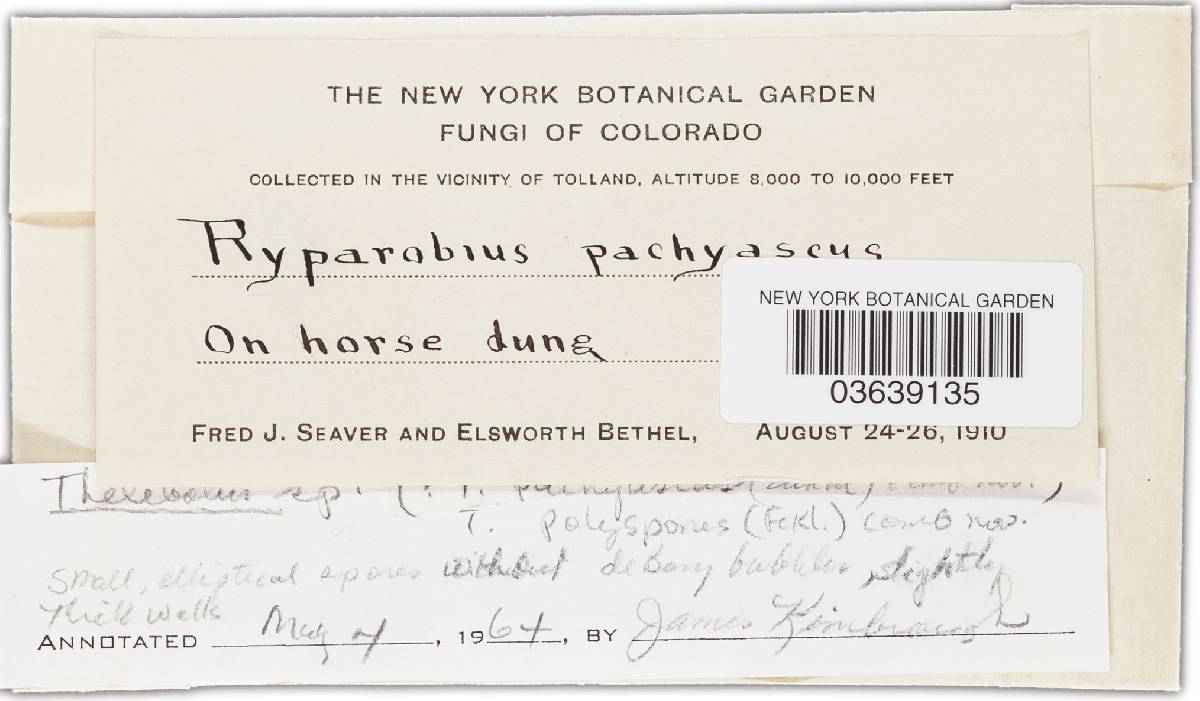 THE NEW YORK BOTANICAL GARDEN
FUNGI OF COLORADO
COLLECTED IN THE VICINITY OF TOLLAND, ALTITUDE 8,000 TO 10,000 FEET
Ryparobius pachyascus
On horse dung
NEW YORK BOTANICAL GARDEN
03639135
FRED J. SEAVER AND ELSWORTH BETHEL, AUGUST 24-26, 1910
Thelebolus sp. (
T. polysporus (Fckl.) comb nov.
Small, elliptical spores without deBary bubbles, slightly
thick walls
ANNOTATED May 4, 1964, BY James Kimbrough